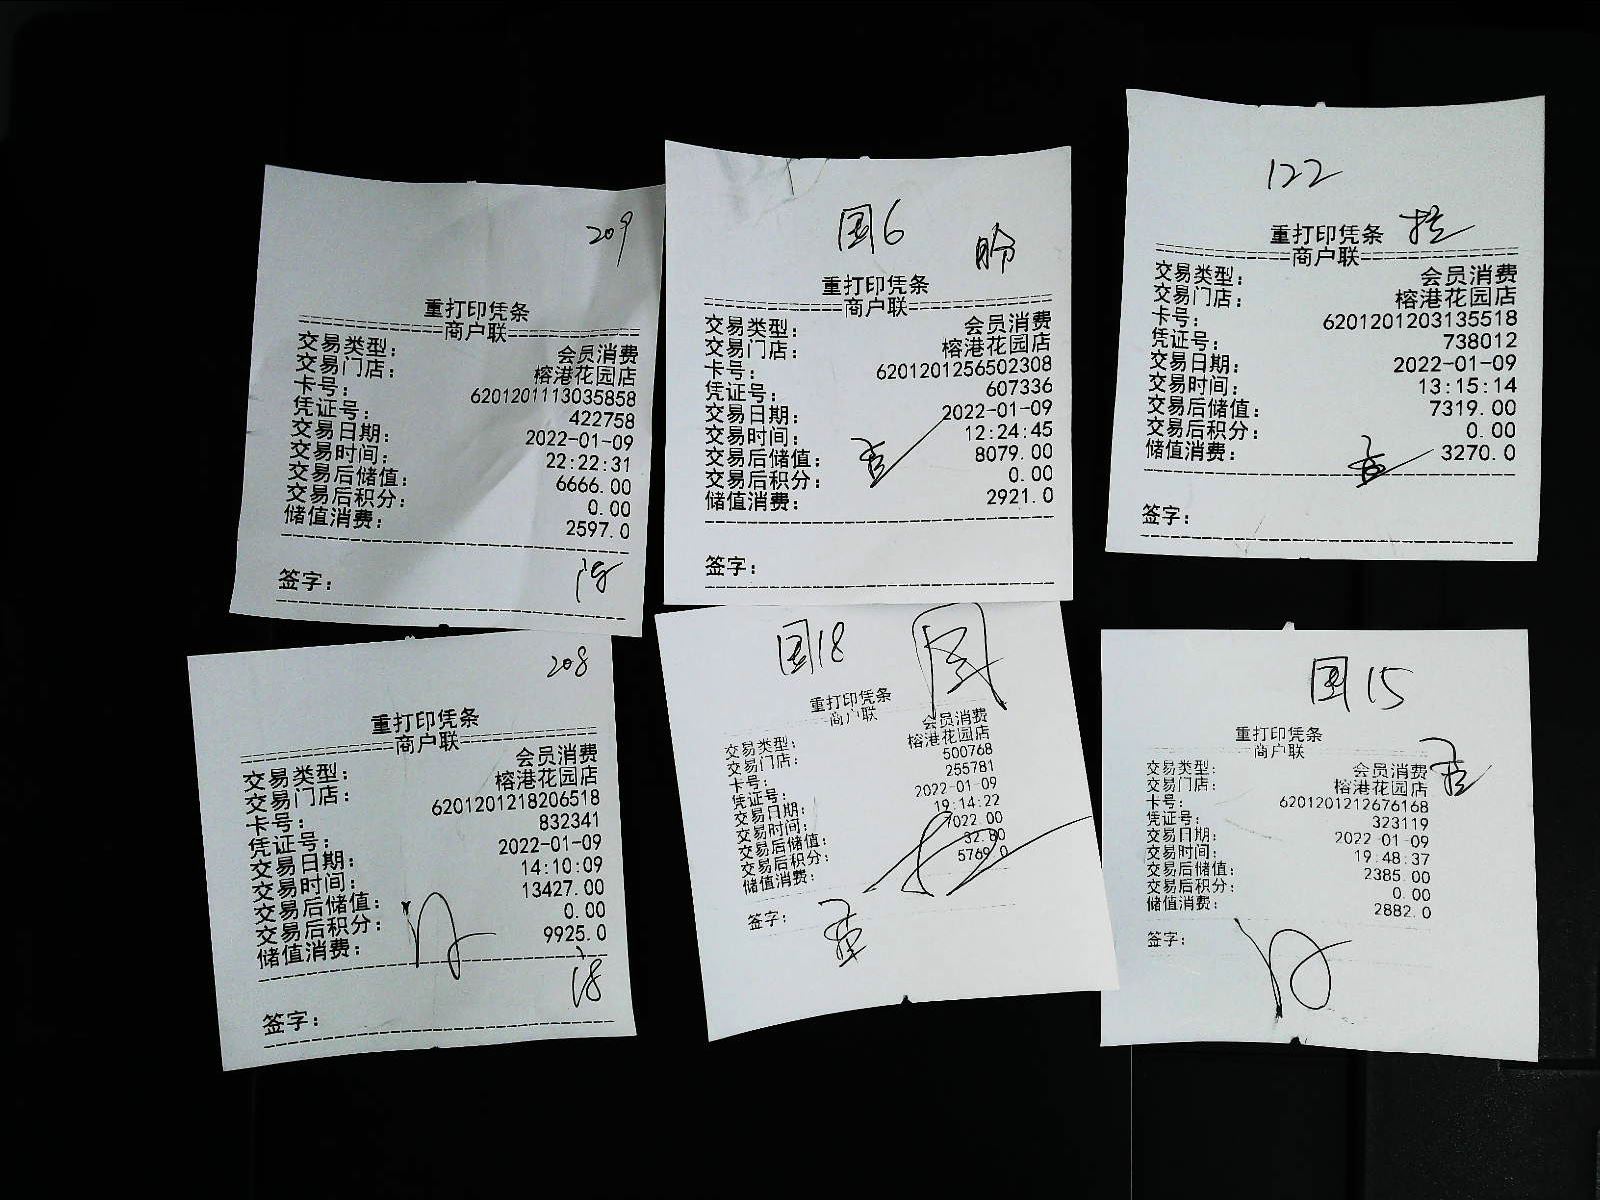 209
重打印凭条
商户联
交易类型： 会员消费
交易门店： 榕港花园店
卡号： 6201201113035858
凭证号： 422758
交易日期： 2022-01-09
交易时间： 22:22:31
交易后储值： 6666.00
交易后积分： 0.00
储值消费： 2597.0
签字：
国6
重打印凭条
商户联
交易类型： 会员消费
交易门店： 榕港花园店
卡号： 6201201256502308
凭证号： 607336
交易日期： 2022-01-09
交易时间： 12:24:45
交易后储值： 8079.00
交易后积分： 0.00
储值消费： 2921.0
签字：
122
重打印凭条
商户联
交易类型： 会员消费
交易门店： 榕港花园店
卡号： 6201201203135518
凭证号： 738012
交易日期： 2022-01-09
交易时间： 13:15:14
交易后储值： 7319.00
交易后积分： 0.00
储值消费： 3270.0
签字：
208
重打印凭条
商户联
交易类型： 会员消费
交易门店： 榕港花园店
卡号： 6201201218206518
凭证号： 832341
交易日期： 2022-01-09
交易时间： 14:10:09
交易后储值： 13427.00
交易后积分： 0.00
储值消费： 9925.0
签字：
国18
重打印凭条
商户联
交易类型： 会员消费
交易门店： 榕港花园店
卡号： 500768
凭证号： 255781
交易日期： 2022-01-09
交易时间： 19:14:22
交易后储值： 7022.00
交易后积分： 32.80
储值消费： 5769.0
签字：
国15
重打印凭条
商户联
交易类型： 会员消费
交易门店： 榕港花园店
卡号： 6201201212676168
凭证号： 323119
交易日期： 2022-01-09
交易时间： 19:48:37
交易后储值： 2385.00
交易后积分： 0.00
储值消费： 2882.0
签字：